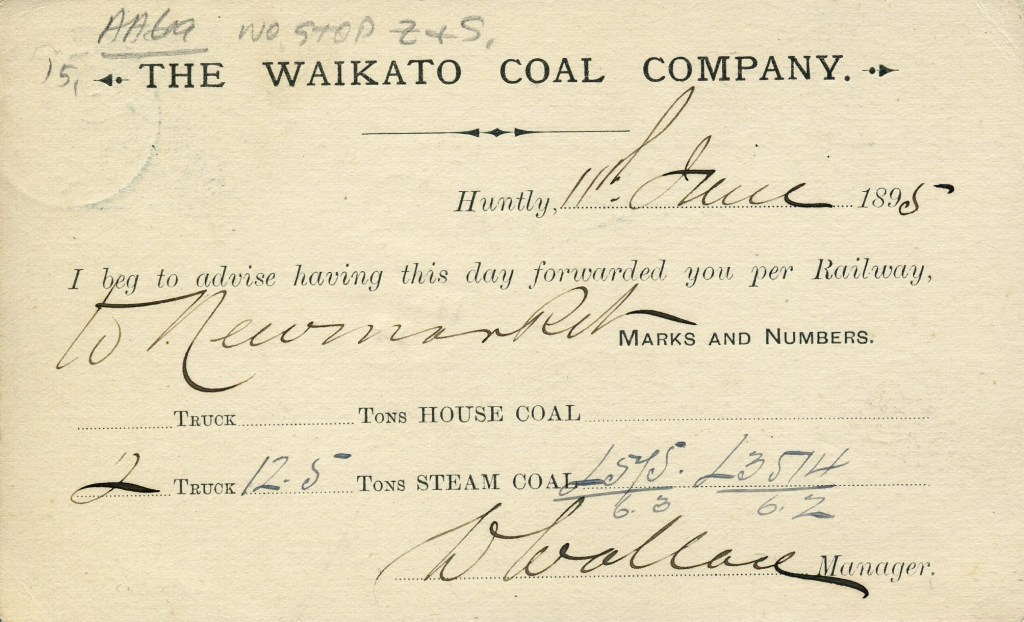 AA6a NO STOP Z & S,
15,
THE WAIKATO COAL COMPANY.
Huntly, 11th June 1895
I beg to advise having this day forwarded you per Railway,
to Newmarket MARKS AND NUMBERS.
TRUCK TONS HOUSE COAL
2 TRUCK 12.5 TONS STEAM COAL L575. L3514
6.3 6.2
W Wallace Manager.